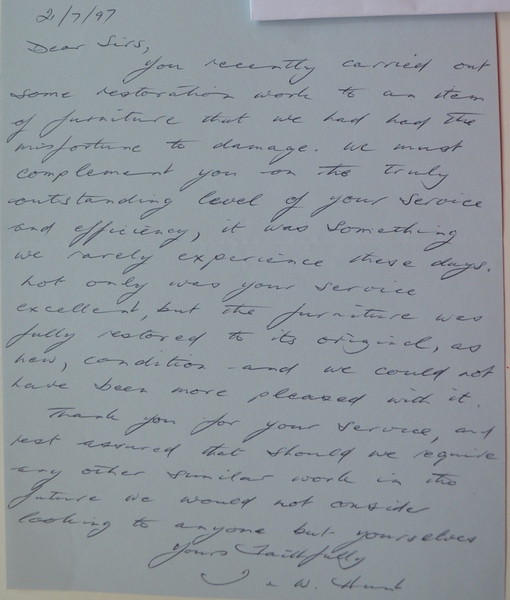 21/7/97
Dear Sirs,
You recently carried out
some restoration work to an item
of furniture that we had had the
misfortune to damage. We must
complement you on the truly
outstanding level of your service
and efficiency, it was something
we rarely experience these days.
Not only was your service
excellent, but the furniture was
fully restored to its original, as
new, condition and we could not
have been more pleased with it.
Thank you for your service, and
rest assured that should we require
any other similar work in the
future we would not consider
looking to anyone but yourselves
Yours Faithfully
W. Hunt